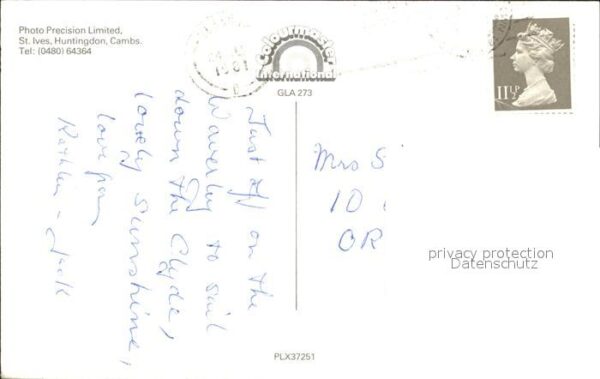 Photo Precision Limited,
St. Ives, Huntingdon, Cambs.
Tel: (0480) 64364
1981
Colourmaster
International
GLA 273
11½P
Just off on the
Waverley to sail
down the Clyde,
lovely sunshine,
love from
Kathleen - Jack
Mrs S
10
OR
privacy protection
Datenschutz
PLX37251